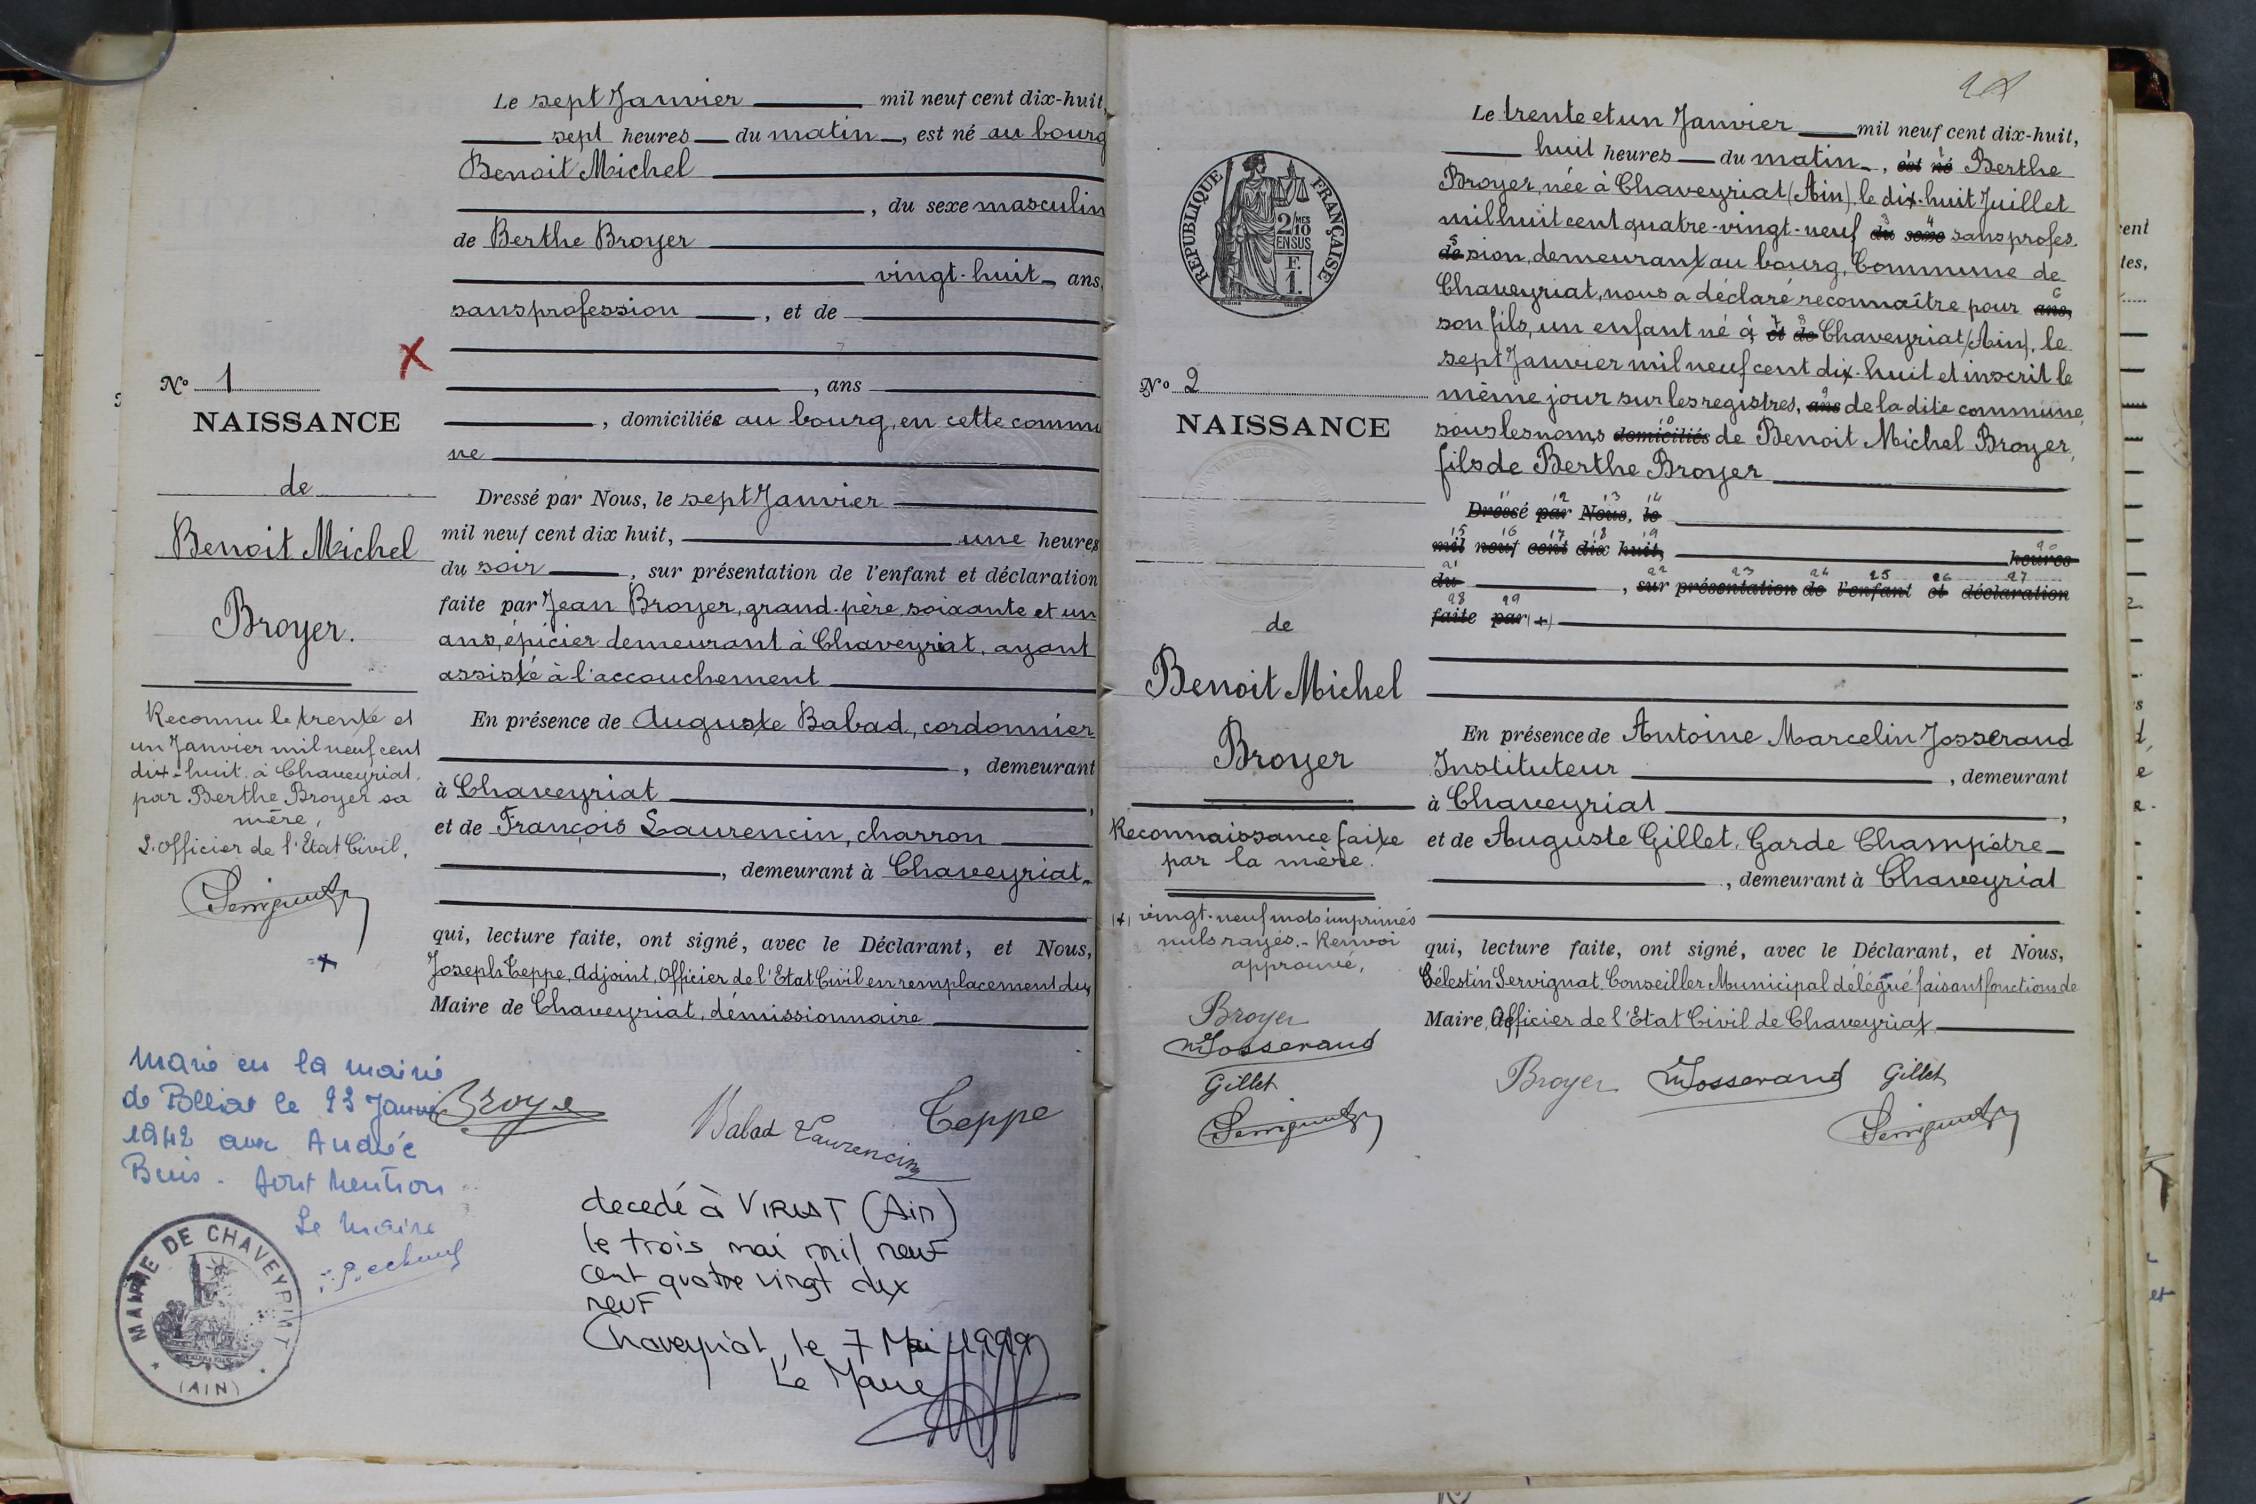 Le sept Janvier mil neuf cent dix-huit,
sept heures du matin, est né au bourg
Benoit Michel
, du sexe masculin
de Berthe Broyer
vingt-huit ans,
sans profession, et de
, ans
, domiciliés au bourg, en cette commu
ne
Dressé par Nous, le sept Janvier
mil neuf cent dix huit, une heures
du soir, sur présentation de l'enfant et déclaration
faite par Jean Broyer, grand-père, soixante et un
ans, épicier demeurant à Chaveyriat, ayant
assisté à l'accouchement
En présence de Auguste Babad, cordonnier
, demeurant
à Chaveyriat,
et de François Laurencin, charron
, demeurant à Chaveyriat
qui, lecture faite, ont signé, avec le Déclarant, et Nous,
Joseph Teppe, Adjoint, Officier de l'Etat Civil en remplacement du
Maire de Chaveyriat, démissionnaire
Broye
Babad Laurencin
Teppe
decedé à VIRIAT (Ain)
le trois mai mil neuf
cent quatre vingt dix
neuf
Chaveyriat, le 7 Mai 1999
Le Maire
X
No 1
NAISSANCE
de
Benoit Michel
Broyer.
Reconnu le trente et
un Janvier mil neuf cent
dix-huit à Chaveyriat,
par Berthe Broyer sa
mère,
L'officier de l'Etat Civil,
Servignat
x
Marié en la mairie
de Polliat le 23 Janvier
1942 avec Andrée
Buis. dont mention
Le Maire
MAIRIE DE CHAVEYRIAT
(AIN)
Le trente et un Janvier mil neuf cent dix-huit,
huit heures du matin, est né Berthe
Broyer, née à Chaveyriat (Ain), le dix-huit Juillet
mil huit cent quatre-vingt-neuf du sexe sans profes-
de sion, demeurant au bourg, Commune de
Chaveyriat, nous a déclaré reconnaître pour ans,
son fils, un enfant né à, et de Chaveyriat (Ain), le
sept Janvier mil neuf cent dix-huit et inscrit le
même jour sur les registres, ans de la dite commune,
sous les noms domiciliés de Benoit Michel Broyer,
fils de Berthe Broyer
11 12 13 14
Dressé par Nous, le
15 16 17 18 19 20
mil neuf cent dix huit, heures
21 22 23 24 25 26 27
du, sur présentation de l'enfant et déclaration
28 29
faite par (+)
En présence de Antoine Marcelin Josserand
Instituteur, demeurant
à Chaveyriat,
et de Auguste Gillet, Garde Champêtre
, demeurant à Chaveyriat
qui, lecture faite, ont signé, avec le Déclarant, et Nous,
Célestin Servignat, Conseiller Municipal délégué faisant fonctions de
Maire, Officier de l'Etat Civil de Chaveyriat
Broyer MJosserand Gillet
Servignat
RÉPUBLIQUE FRANÇAISE
2/10 MES
EN SUS
F.
1.
No 2
NAISSANCE
de
Benoit Michel
Broyer
Reconnaissance faite
par la mère.
(+) vingt-neuf mots imprimés
nuls rayés. - Renvoi
approuvé,
Broyer
MJosserand
Gillet
Servignat